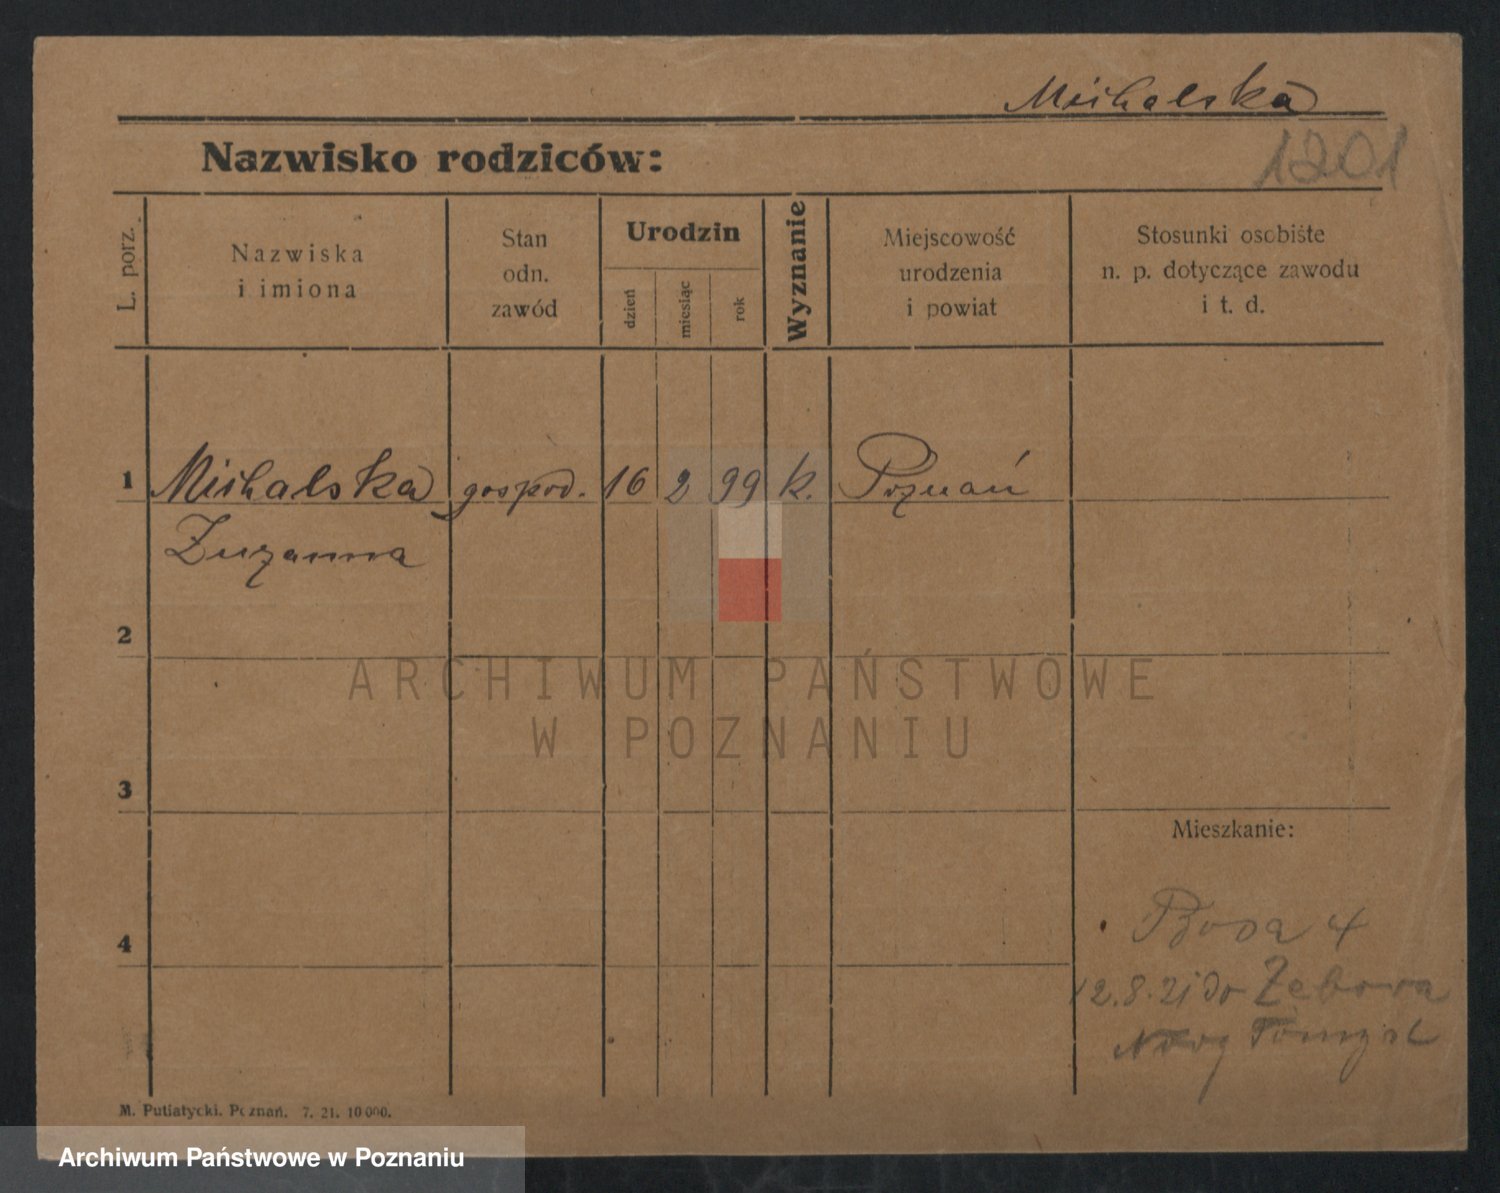 Michalska
Nazwisko rodziców:
1201
L. porz.
Nazwiska
i imiona
Stan
odn.
zawód
Urodzin
dzień
miesiąc
rok
Wyznanie
Miejscowość
urodzenia
i powiat
Stosunki osobiste
n. p. dotyczące zawodu
i t. d.
1 Michalska gospod. 16 2 99 k. Poznań
Zuzanna
2
ARCHIWUM PAŃSTWOWE
W POZNANIU
3
Mieszkanie:
4
4
12.8.21 do
Nowy Tomyśl
M. Putiatycki. Poznań. 7. 21. 10000.
Archiwum Państwowe w Poznaniu